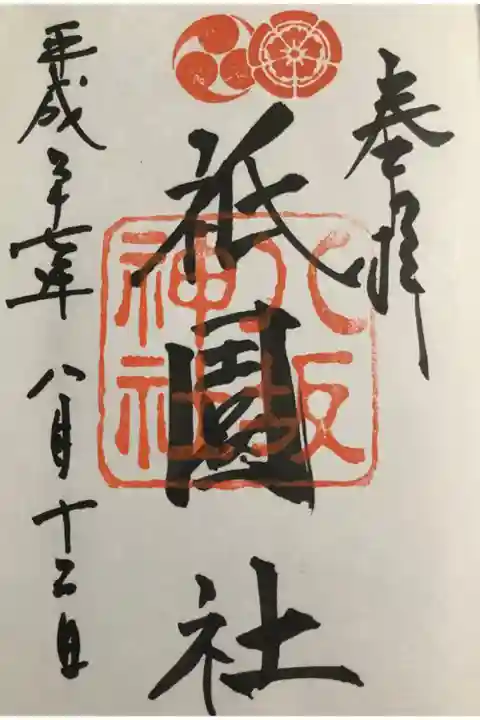 奉拝
八坂
神社
祇園社
平成二十七年 八月十日